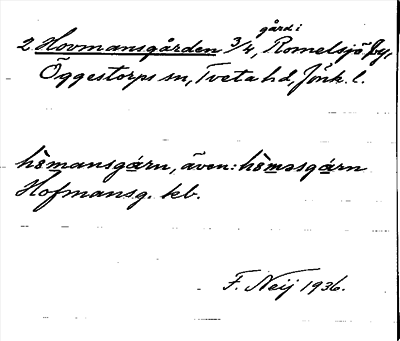 gård i
2 Hovmansgården 3/4, Romelsjö by,
Öggestorps sn, Tveta hd, Jönk. l.
hòmansgárn, även: hòməsgárn
Hofmansg. kb.
F. Neij 1936.